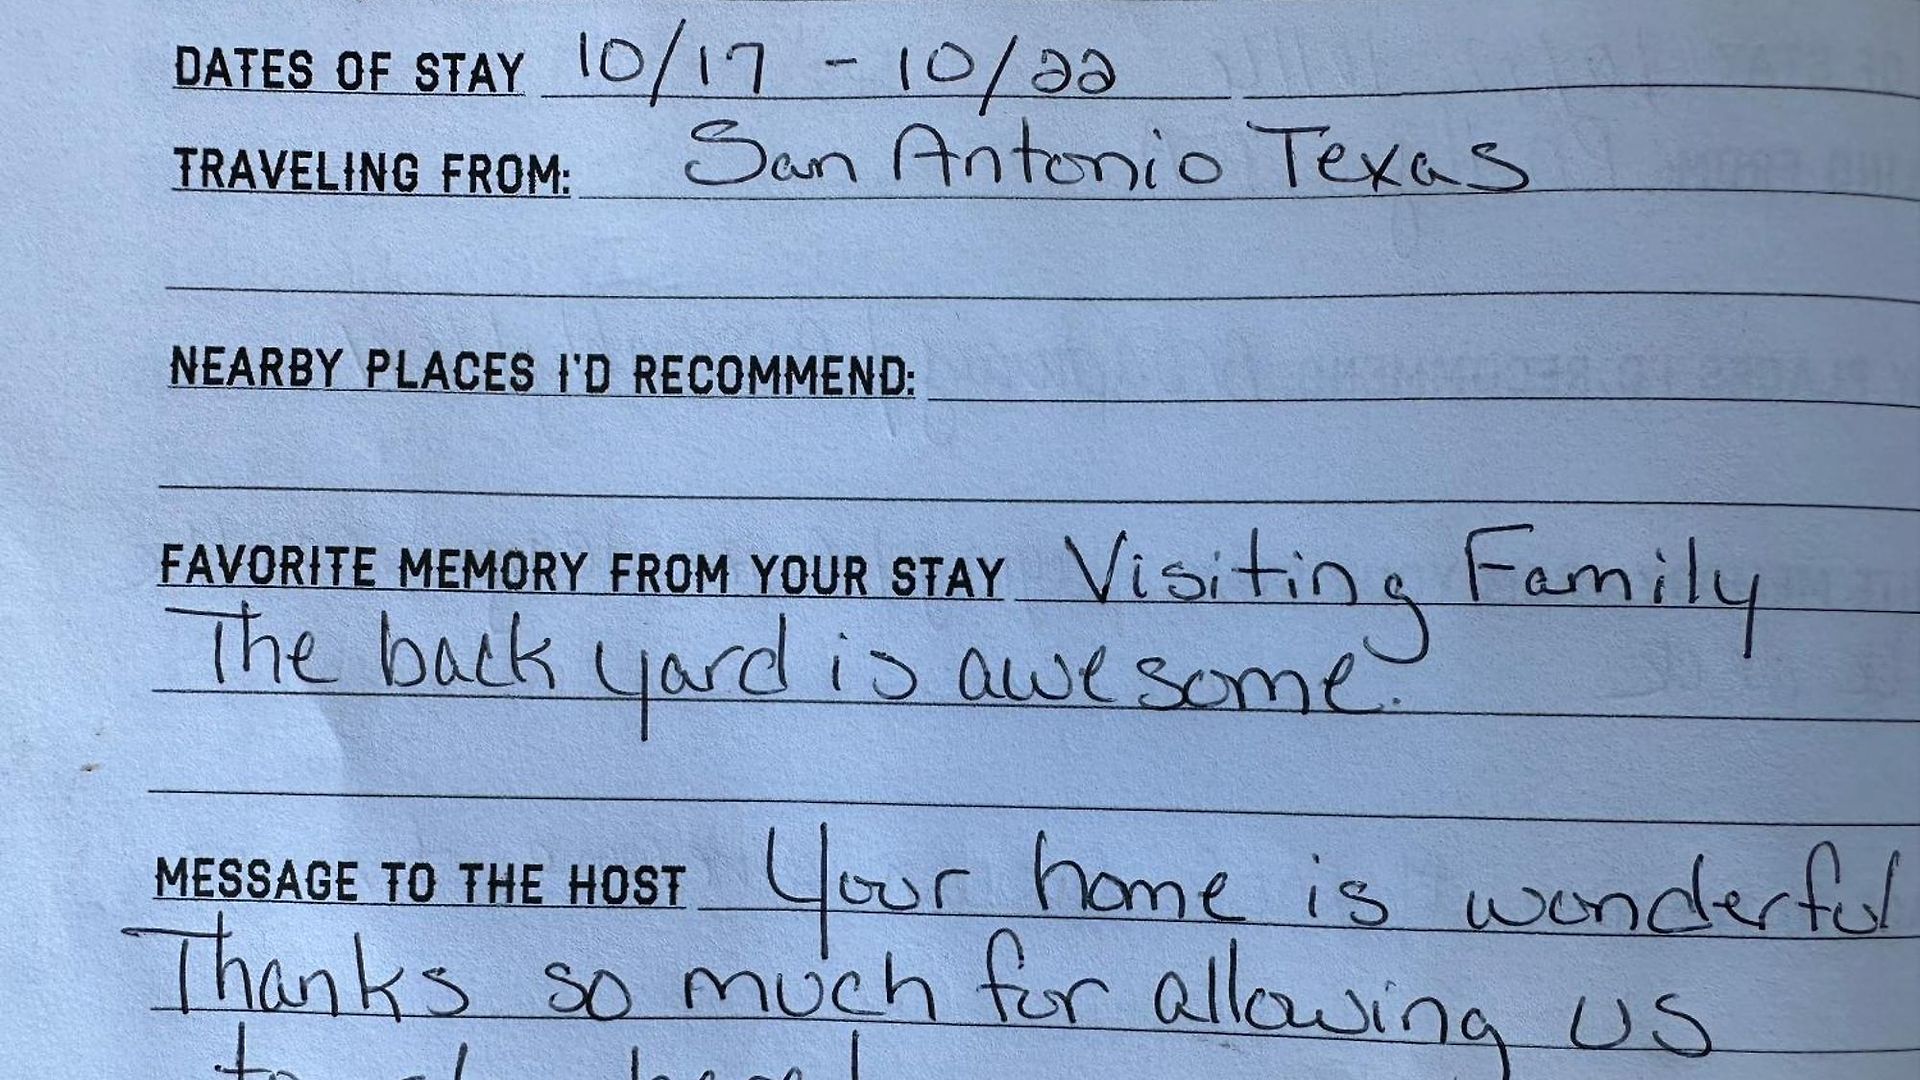 DATES OF STAY 10/17 - 10/22
TRAVELING FROM: San Antonio Texas
NEARBY PLACES I'D RECOMMEND:
FAVORITE MEMORY FROM YOUR STAY Visiting Family
The back yard is awesome.
MESSAGE TO THE HOST Your home is wonderful
Thanks so much for allowing us
to